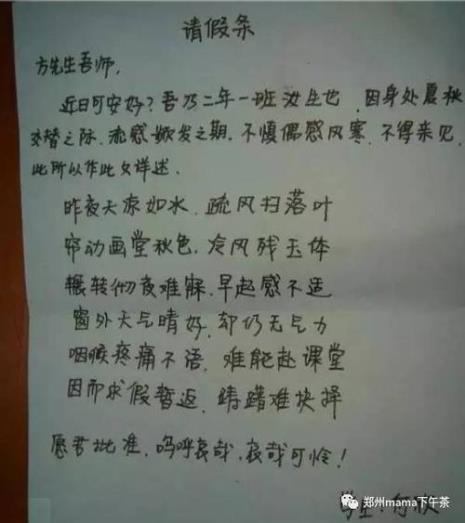 请假条
方先生吾师,
近日可安好?吾乃二年一班汝生也,因身处夏秋
交替之际,流感频发之期,不慎偶感风寒,不得亲见,
此所以作此文详述.
昨夜天凉如水,疏风扫落叶
帘动画堂秋色,冷风残玉体
辗转彻夜难寐,早起感不适
窗外天气晴好,却仍无气力
咽喉疼痛不语,难能赴课堂
因而求假暂返,踌躇难抉择
愿君批准,呜呼哀哉,哀哉可怜!
学生:
郑州mama下午茶